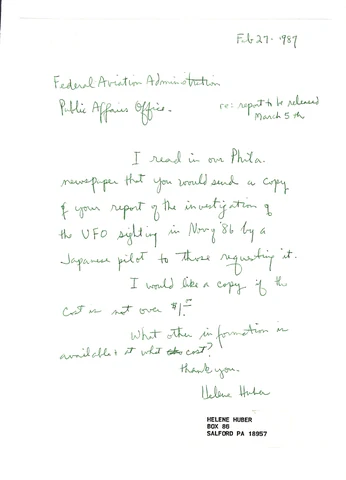 Feb 27 - 1987
Federal Aviation Administration
Public Affairs Office.
re: report to be released
March 5th
I read in our Phila.
newspaper that you would send a copy
of your report of the investigation of
the UFO sighting in Nov of '86 by a
Japanese pilot to those requesting it.
I would like a copy if the
cost is not over $1.00
What other information is
available & at what cost?
Thank you.
Helene Huber
HELENE HUBER
BOX 86
SALFORD PA 18957